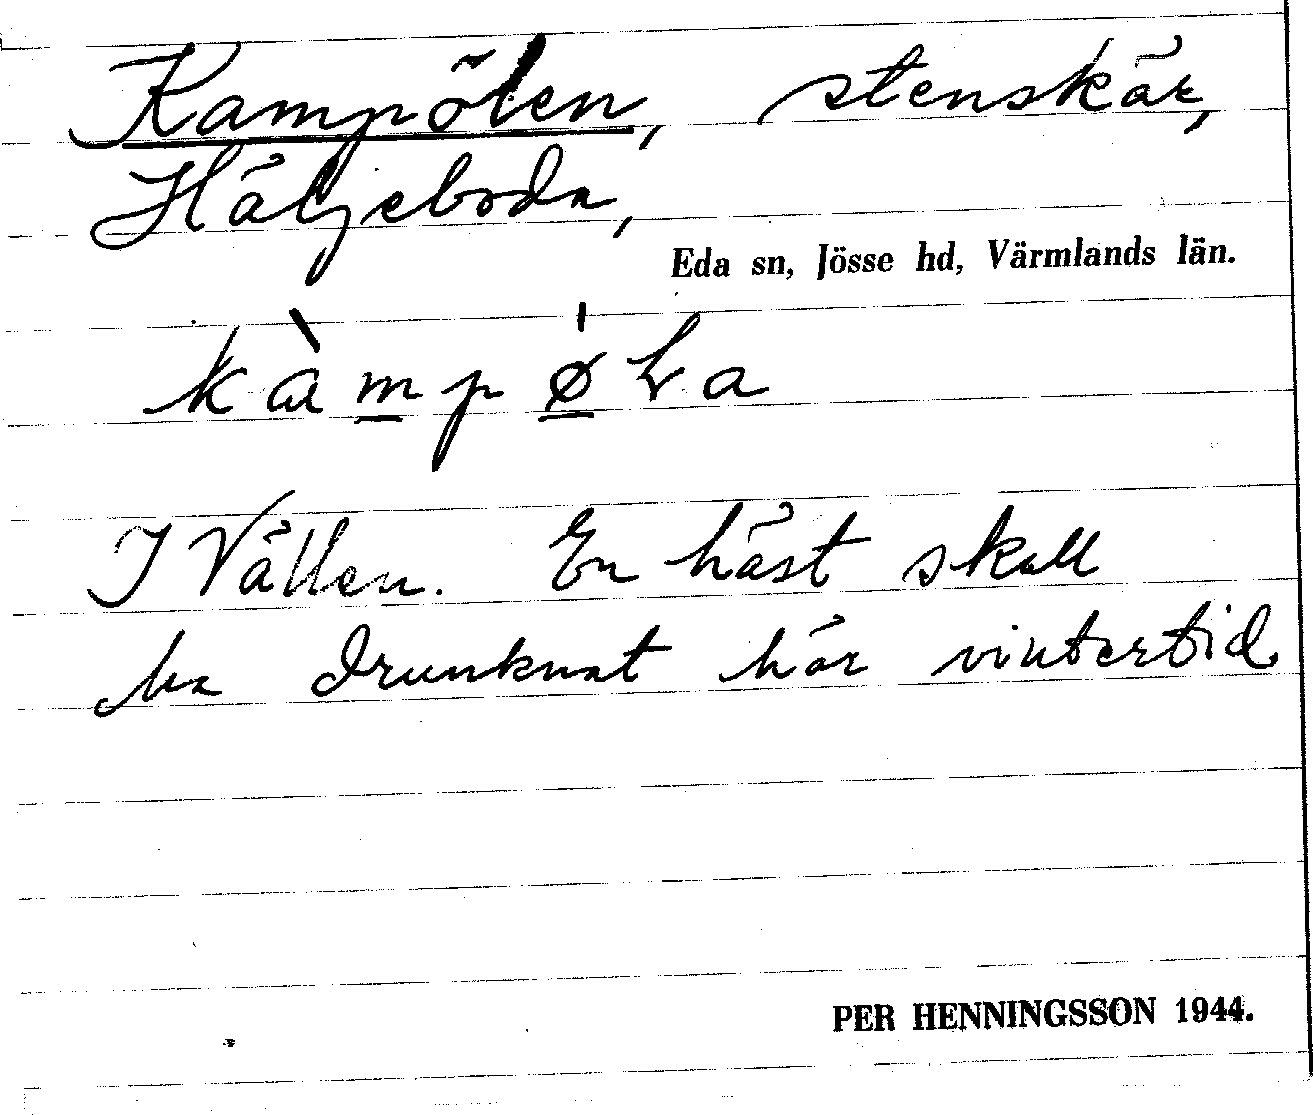 Kampölen, stenskär,
Häljeboda,
Eda sn, Jösse hd, Värmlands län.
kàmpøLa
I Vällen. En häst skall
ha drunknat här vintertid
PER HENNINGSSON 1944.